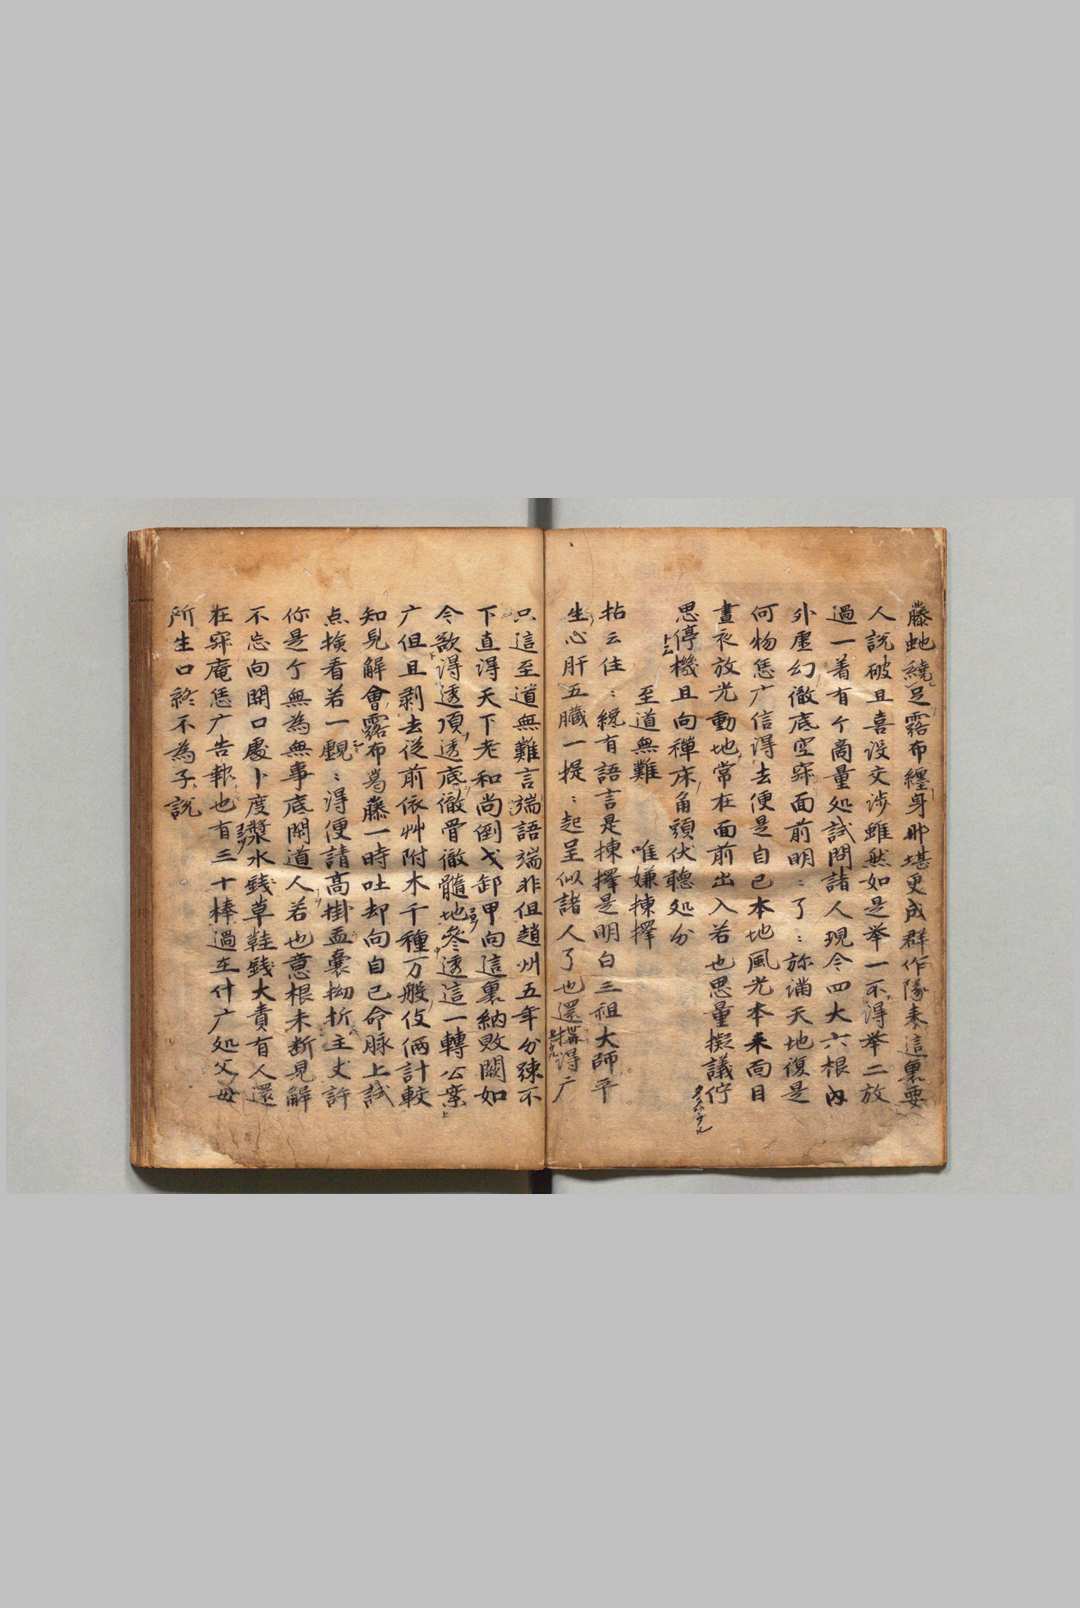 藤虵繞足霧布纏身那堪更成群作隊来這裏要
人説破且喜没交渉雖然如是举一不得举二放
過一着有个商量処試問諸人現今四大六根内
外虚幻徹底空寂面前明〻了〻弥満天地復是
何物恁广信得去便是自己本地風光本来面目
晝夜放光動地常在面前出入若也思量擬議佇
思停機且向禪床角頭伏聴処分
至道無難 唯嫌揀擇
拈云住〻纔有語言是揀擇是明白三祖大師平
生心肝五臓一提〻起呈似諸人了也還搆得广
只這至道無難言端語端非但趙州五年分疎不
下直得天下老和尚倒戈卸甲向這裏納敗闕如
今欲得透頂透底徹骨徹髓地叅透這一轉公案
广但且剥去従前依艸附木千種万般伎倆計較
知見解會露布葛藤一時吐却向自己命脉上試
点検看若一覰〻得便請高掛盂囊拗折主丈許
你是个無為無事底閑道人若也意根未断見解
不忘向開口處卜度漿水銭草鞋銭大責有人還
在寂庵恁广告報也有三十棒過在什广処父母
所生口終不為子説